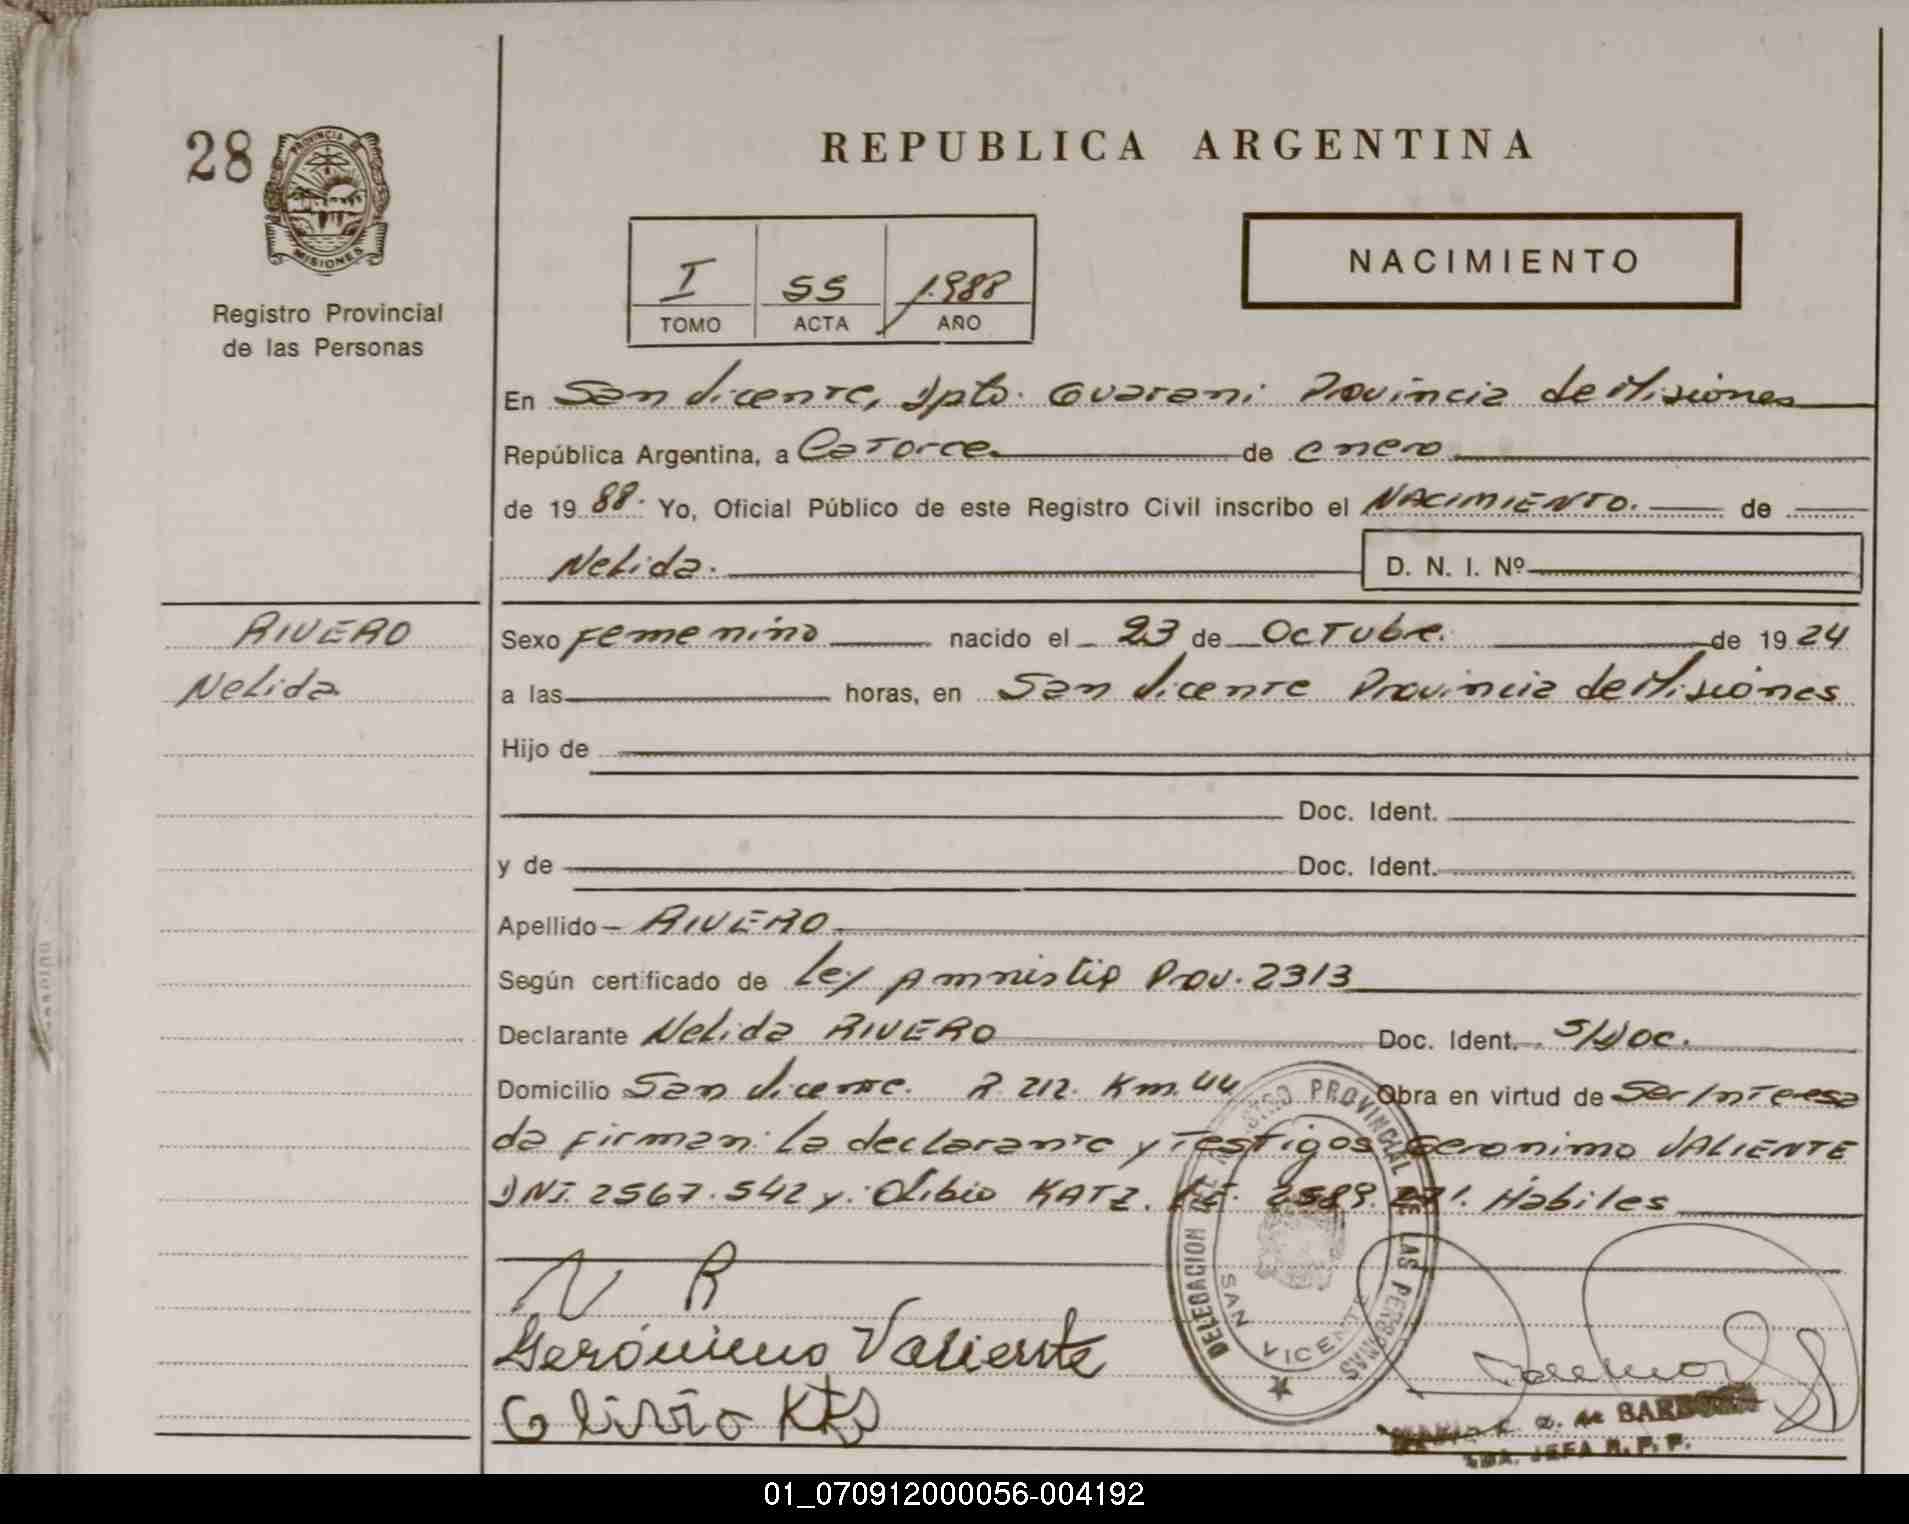 28
PROVINCIA DE
MISIONES
Registro Provincial
de las Personas
REPUBLICA ARGENTINA
I 55 1.988
TOMO ACTA AÑO
NACIMIENTO
En San Vicente, Dpto. Guarani Provincia de Misiones
República Argentina, a Catorce de enero
de 19 88. Yo, Oficial Público de este Registro Civil inscribo el NACIMIENTO. de
Nelida. D. N. I. Nº
RIVERO
Nelida
Sexo Femenino nacido el 23 de Octubre. de 19 24
a las horas, en San Vicente Provincia de Misiones
Hijo de
Doc. Ident.
y de Doc. Ident.
Apellido RIVERO
Según certificado de Ley Amnistia Prov. 2313
Declarante Nelida RIVERO Doc. Ident. S/Doc.
Domicilio San Vicente. R. 212. Km. 44 Obra en virtud de Ser Interesa
da Firman: La declarante y Testigos Geronimo VALIENTE
DNI. 2567.542 y: Olibio KATZ. LE. 2589.271. Habiles
N R
Gerónimo Valiente
Olivio
DELEGACION DEL REGISTRO PROVINCIAL DE LAS PERSONAS
SAN VICENTE
de BARBOZA
JEFA R. P. P.
01_070912000056-004192